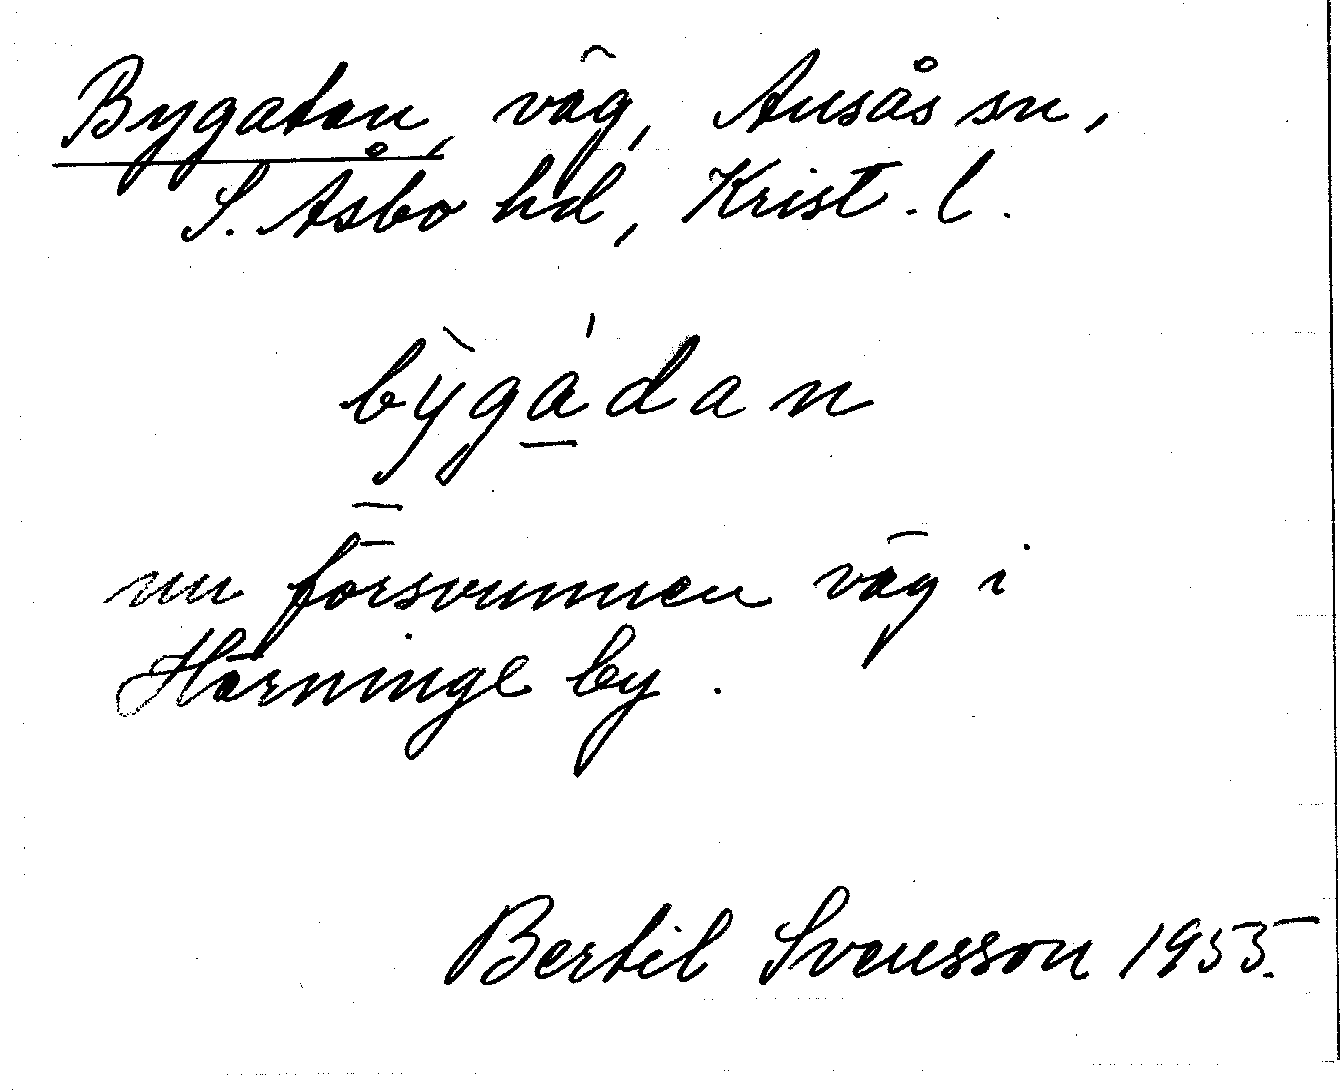 Bygatan, väg, Ausås sn,
S. Åsbo hd, Krist. l.
bỳgádan
nu försvunnen väg i
Härninge by.
Bertil Svensson 1955.